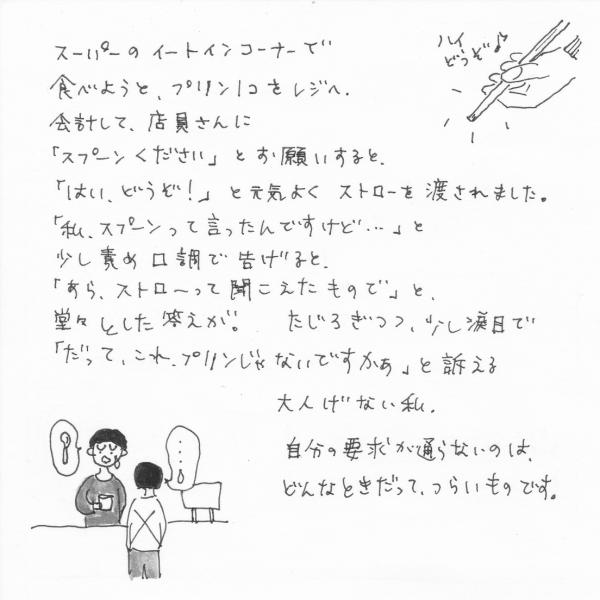 スーパーのイートインコーナーで
食べようと、プリン1コをレジへ。
会計して、店員さんに
「スプーンください」とお願いすると、
「はい、どうぞ！」と元気よくストローを渡されました。
「私、スプーンって言ったんですけど…」と
少し責め口調で告げると、
「あら、ストローって聞こえたもので」と、
堂々とした答えが。 たじろぎつつ、少し涙目で
「だって、これ、プリンじゃないですかぁ」と訴える
大人げない私。
自分の要求が通らないのは、
どんなときだって、つらいものです。
ハイ
どうぞ♪
……